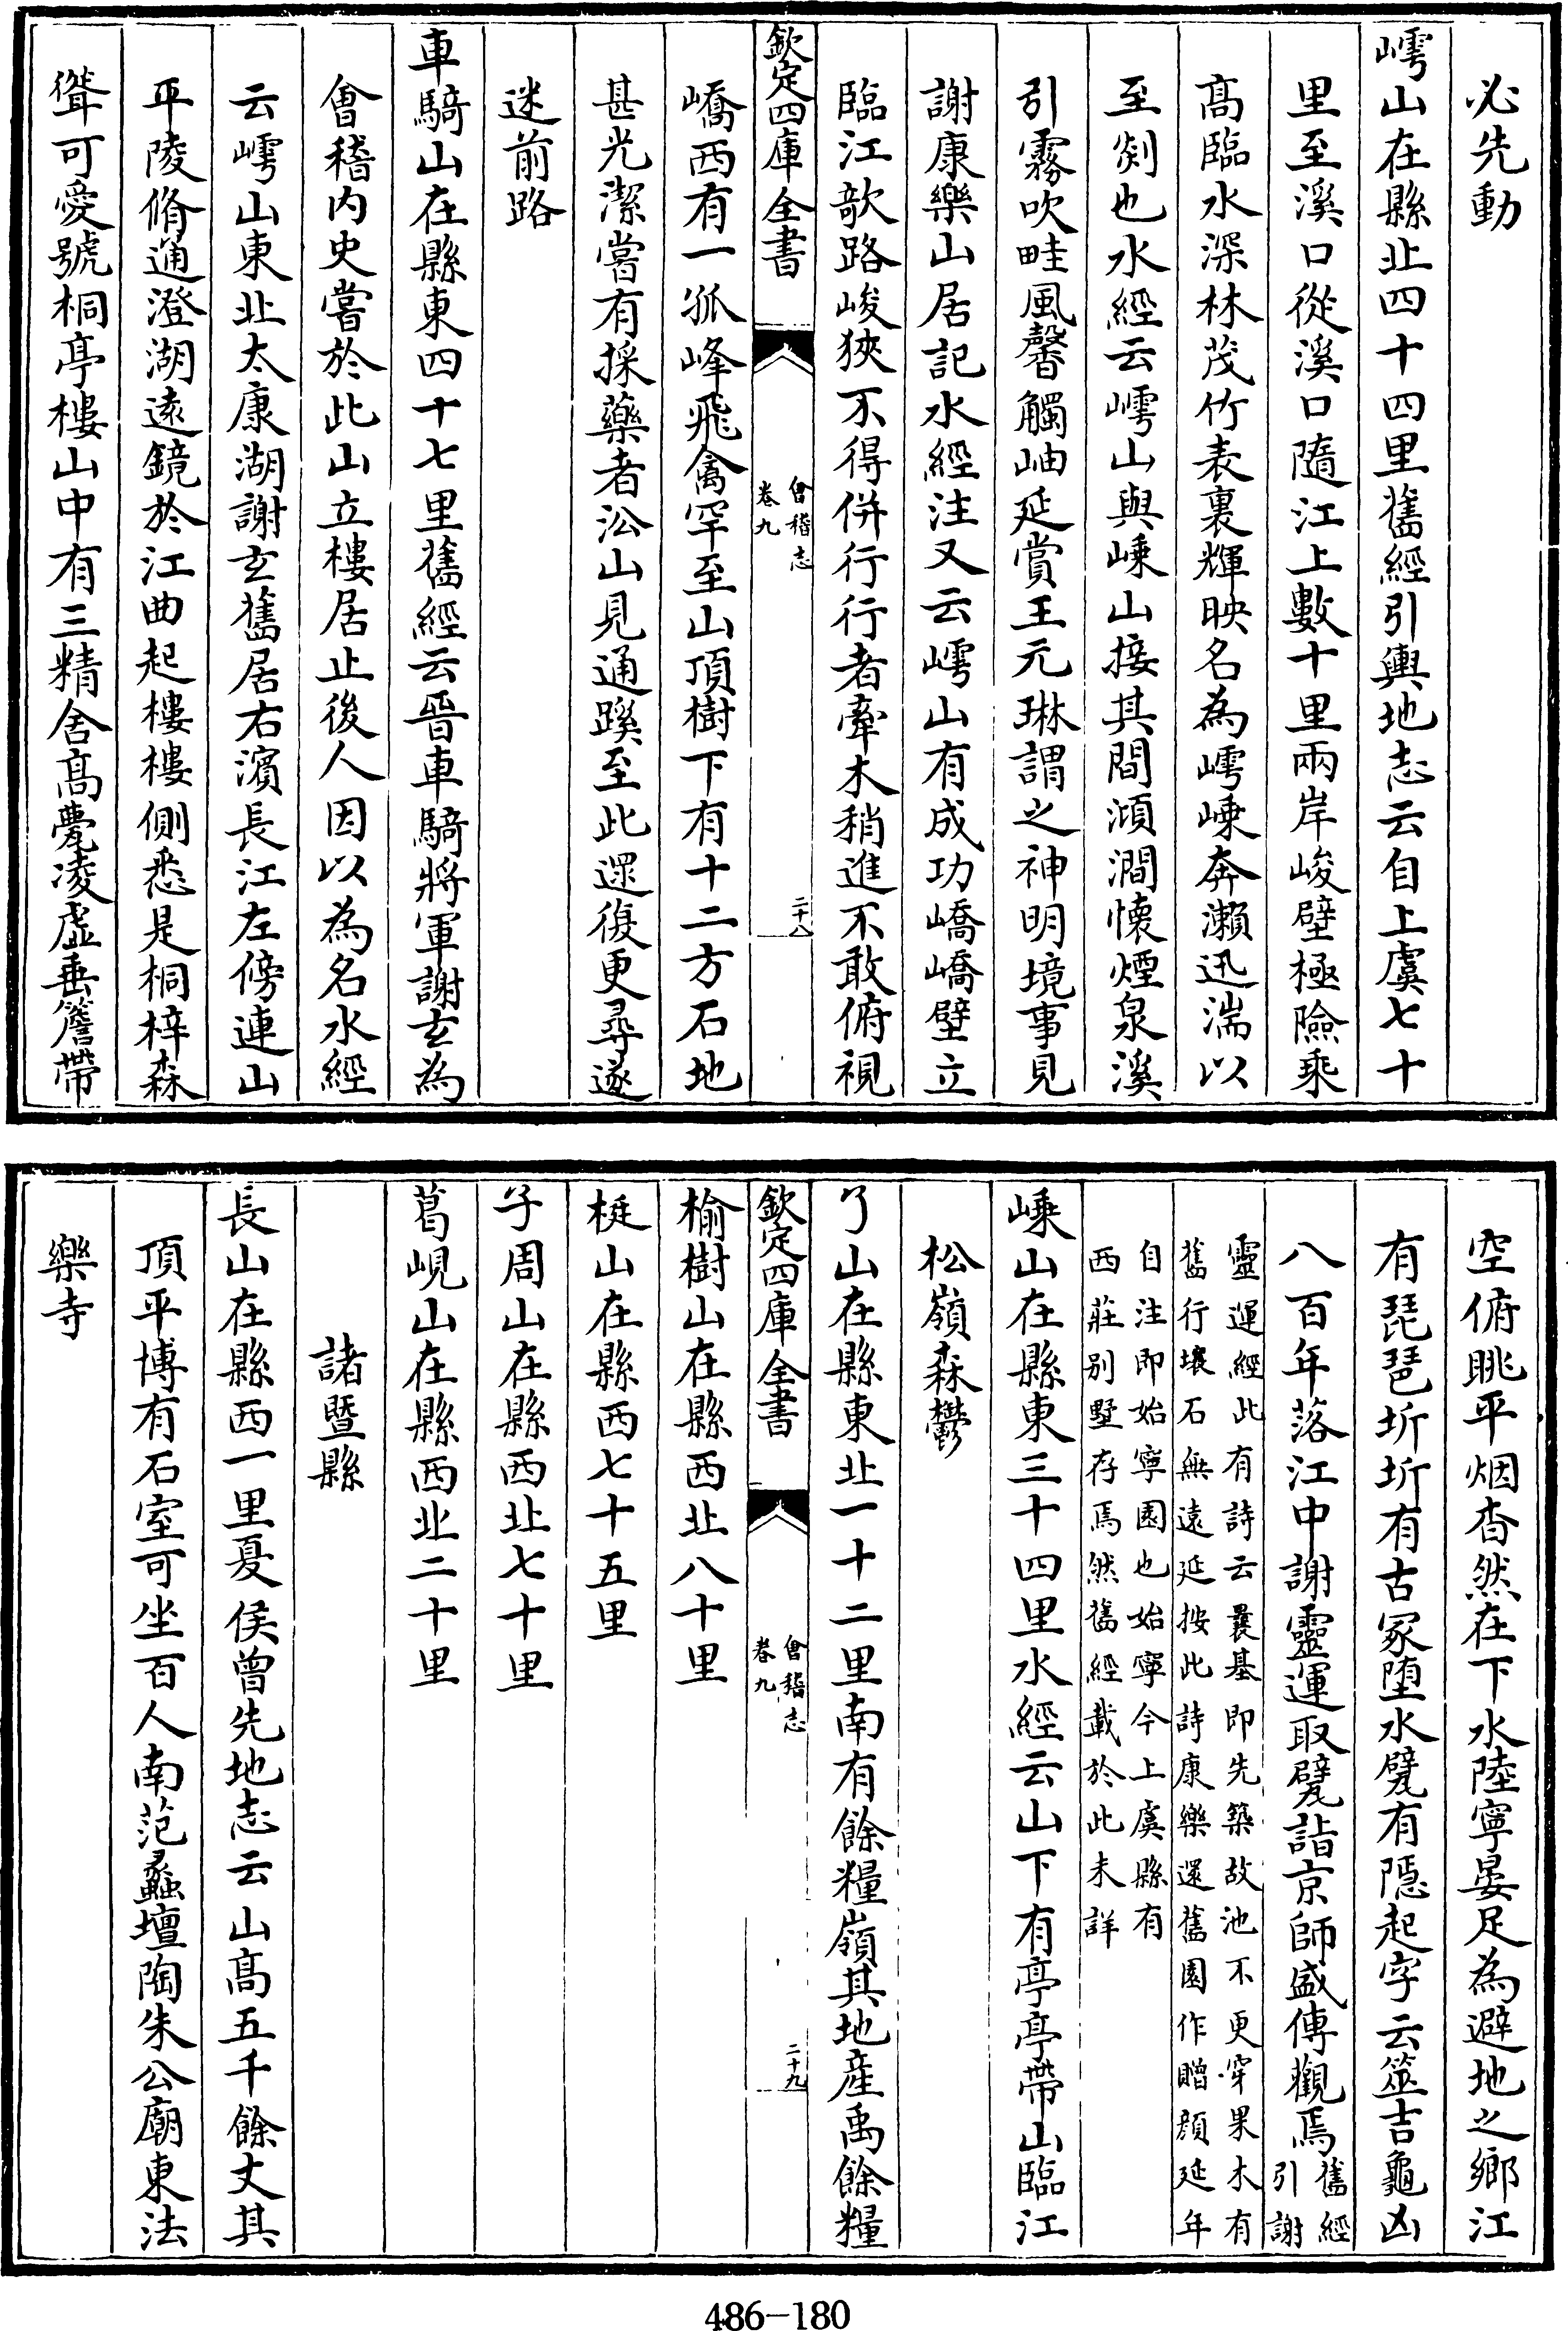 必先動
嶀山在縣北四十四里舊經引輿地志云自上虞七十
里至溪口從溪口隨江上數十里兩岸峻壁極險乘
髙臨水深林茂竹表裏輝映名為嶀嵊奔瀨迅湍以
至剡也水經云嶀山與嵊山接其間澒澗懷煙泉溪
引霧吹畦風馨觸岫延賞王元琳謂之神明境事見
謝康樂山居記水經注又云嶀山有成功嶠嶠壁立
臨江欹路峻狹不得併行行者牽木稍進不敢俯視
欽定四庫全書
會稽志
卷九
二十八
嶠西有一孤峰飛禽罕至山頂樹下有十二方石地
甚光潔嘗有採藥者㳂山見通蹊至此還復更尋遂
迷前路
車騎山在縣東四十七里舊經云晉車騎將軍謝玄為
會稽内史嘗於此山立樓居止後人因以為名水經
云嶀山東北太康湖謝玄舊居右濱長江左傍連山
平陵脩通澄湖遠鏡於江曲起樓樓側悉是桐梓森
聳可愛號桐亭樓山中有三精舍髙甍凌虚垂簷帶
空俯眺平烟杳然在下水陸寧晏足為避地之鄉江
有琵琶圻圻有古冢墮水甓有隠起字云筮吉龜凶
八百年落江中謝靈運取甓詣京師盛傳觀焉舊經
引謝
靈運經此有詩云曩基即先築故池不更穿果木有
舊行壤石無遠延按此詩康樂還舊園作贈顔延年
自注即始寧園也始寧今上虞縣有
西莊别墅存焉然舊經載於此未詳
嵊山在縣東三十四里水經云山下有亭亭帶山臨江
松嶺森鬱
了山在縣東北一十二里南有餘糧嶺其地産禹餘糧
欽定四庫全書
會稽志
卷九
二十九
榆樹山在縣西北八十里
梃山在縣西七十五里
子周山在縣西北七十里
葛峴山在縣西北二十里
諸暨縣
長山在縣西一里夏侯曾先地志云山髙五千餘丈其
頂平博有石室可坐百人南范蠡壇陶朱公廟東法
樂寺
486-180